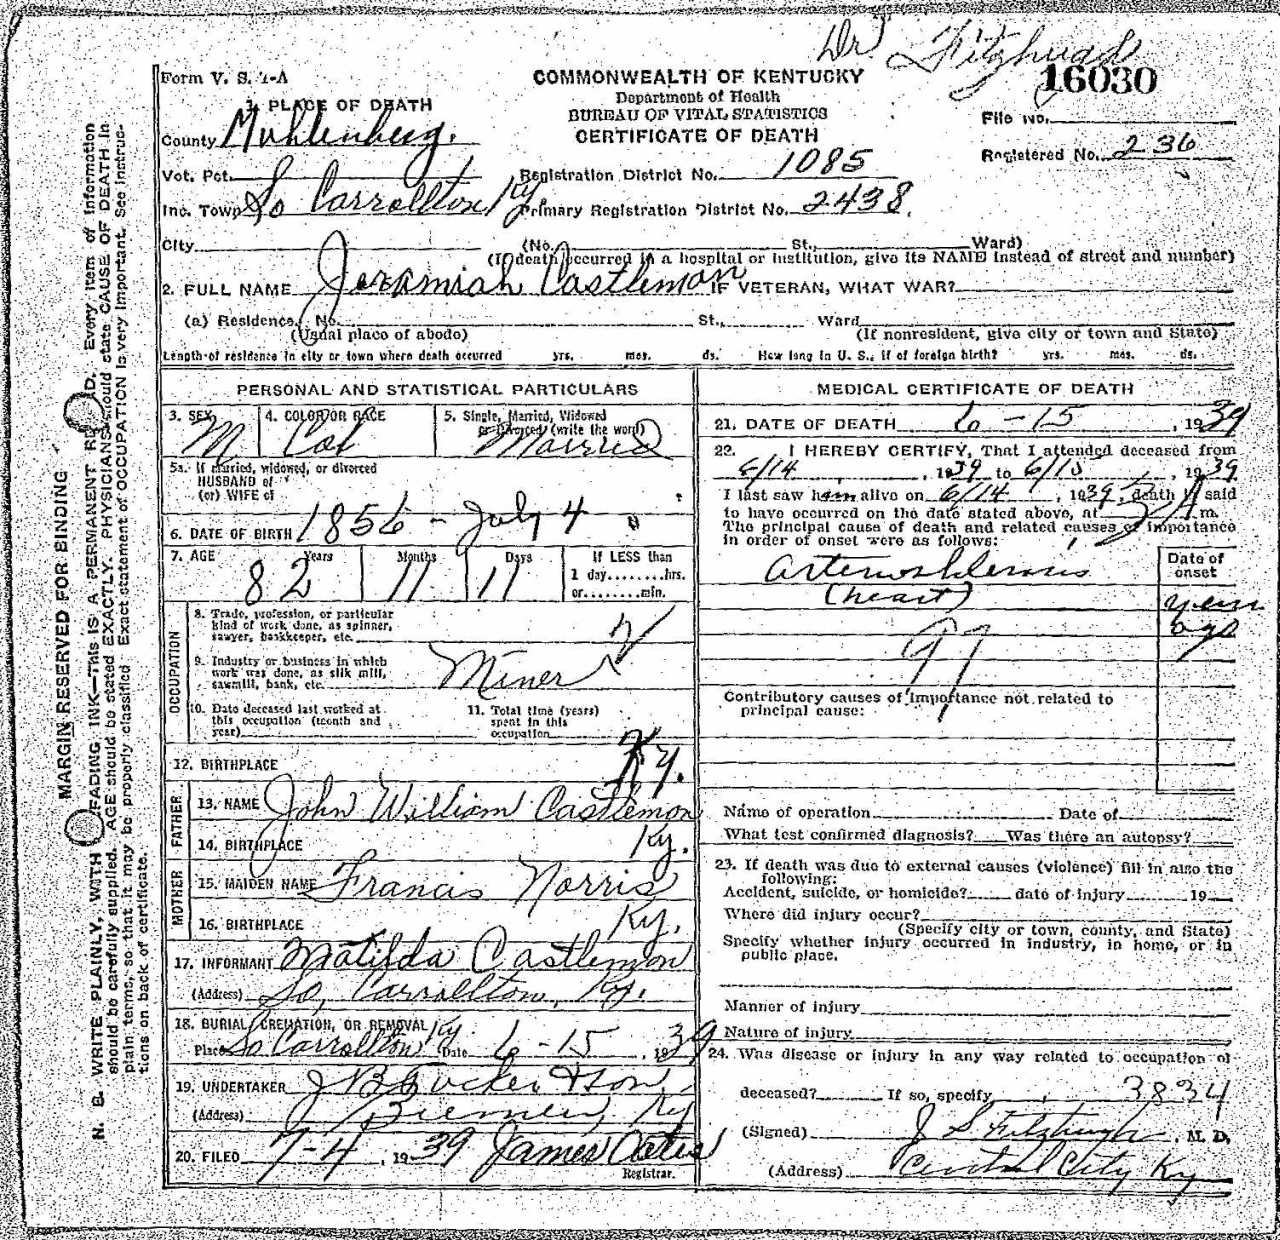 Dr Fitzhugh
Form V. S. 1-A
COMMONWEALTH OF KENTUCKY
16030
Department of Health
BUREAU OF VITAL STATISTICS
CERTIFICATE OF DEATH
File No.
Registered No. 236
1. PLACE OF DEATH
County Muhlenberg.
Vot. Pct.
Registration District No. 1085
Inc. Town So Carrollton Ky.
Primary Registration District No. 2438.
City (No. St., Ward)
(If death occurred in a hospital or institution, give its NAME instead of street and number)
2. FULL NAME Jeramiah Castlemon IF VETERAN, WHAT WAR?
(a) Residence. No. St., Ward
(Usual place of abode) (If nonresident, give city or town and State)
Length of residence in city or town where death occurred yrs. mos. ds. How long in U. S., if of foreign birth? yrs. mos. ds.
PERSONAL AND STATISTICAL PARTICULARS
3. SEX M
4. COLOR OR RACE Col
5. Single, Married, Widowed or Divorced (write the word) Married
5a. If married, widowed, or divorced
HUSBAND of
(or) WIFE of
6. DATE OF BIRTH 1856 - July 4
7. AGE 82 Years 11 Months 11 Days
If LESS than
1 day........hrs.
or........min.
OCCUPATION
8. Trade, profession, or particular
kind of work done, as spinner,
sawyer, bookkeeper, etc.
9. Industry or business in which
work was done, as silk mill,
sawmill, bank, etc. Miner
10. Date deceased last worked at
this occupation (month and
year)
11. Total time (years)
spent in this
occupation
12. BIRTHPLACE Ky.
FATHER
13. NAME John William Castlemon
14. BIRTHPLACE Ky.
MOTHER
15. MAIDEN NAME Francis Norris
16. BIRTHPLACE Ky.
17. INFORMANT Matilda Castlemon
(Address) So, Carrollton, Ky.
18. BURIAL, CREMATION, OR REMOVAL
Place So Carrollton Ky Date 6-15, 1939
19. UNDERTAKER J B Tucker & Son
(Address) Bremen, Ky
20. FILED 7-4, 1939 James
Registrar.
MEDICAL CERTIFICATE OF DEATH
21. DATE OF DEATH 6-15, 1939
22. I HEREBY CERTIFY, That I attended deceased from
6/14, 1939 to 6/15, 1939.
I last saw him alive on 6/14, 1939, death is said
to have occurred on the date stated above, at m.
The principal cause of death and related causes of importance
in order of onset were as follows:
Date of onset
Arteriosklerosis
(heart)
years
ago
97
Contributory causes of importance not related to
principal cause:
Name of operation Date of
What test confirmed diagnosis? Was there an autopsy?
23. If death was due to external causes (violence) fill in also the
following:
Accident, suicide, or homicide? date of injury 19
Where did injury occur?
(Specify city or town, county, and State)
Specify whether injury occurred in industry, in home, or in
public place.
Manner of injury
Nature of injury
24. Was disease or injury in any way related to occupation of
deceased? If so, specify 3834
(Signed) J S Fitzhugh, M. D.
(Address) Central City Ky
MARGIN RESERVED FOR BINDING
N. B. WRITE PLAINLY, WITH UNFADING INK—THIS IS A PERMANENT RECORD. Every item of information
should be carefully supplied. AGE should be stated EXACTLY. PHYSICIANS should state CAUSE OF DEATH in
plain terms, so that it may be properly classified. Exact statement of OCCUPATION is very important. See instruc-
tions on back of certificate.